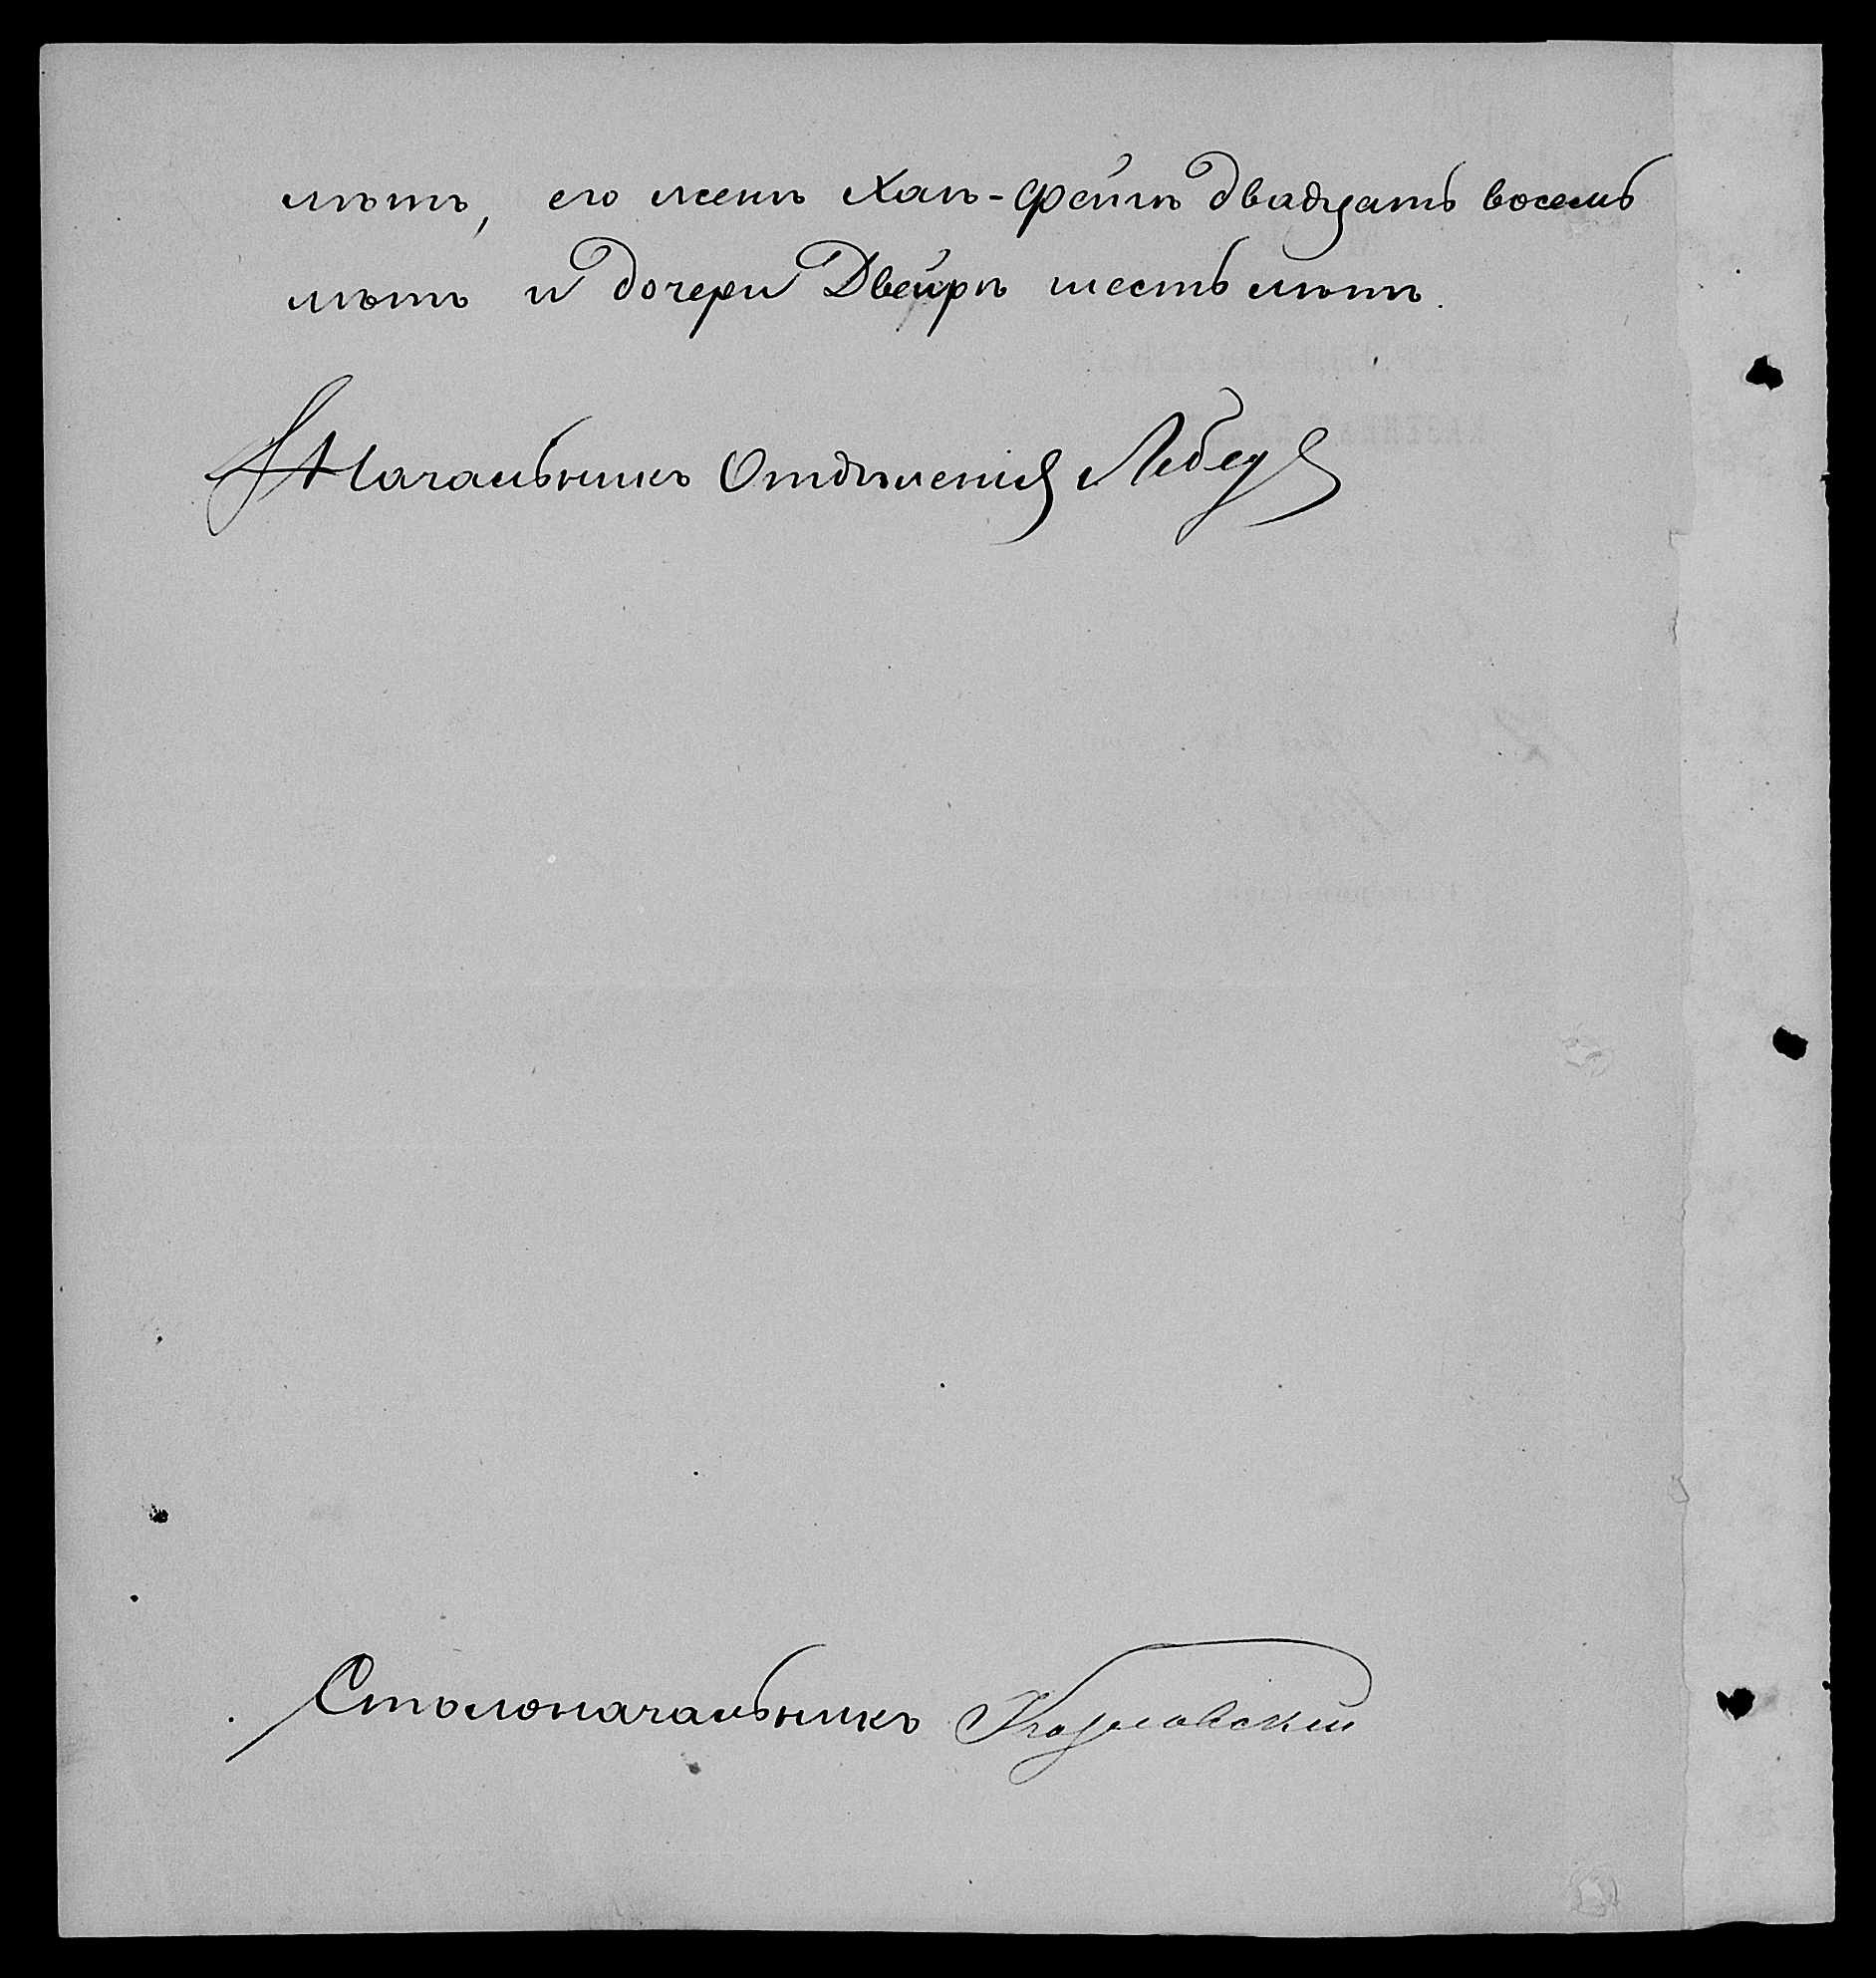 лѣтъ, его женѣ Хаѣ-Фейгѣ двадцать восемь
лѣтъ и дочери Двейрѣ шесть лѣтъ.
Начальникъ Отдѣленія
Столоначальникъ